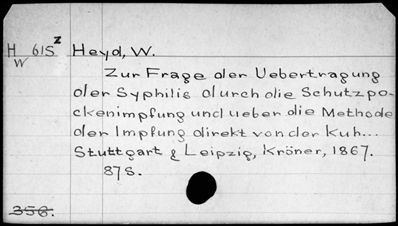 H 615 z Heyd, W.
W
Zur Frage der Uebertragung
der Syphilis durch die Schutzpo-
ckenimpfung und ueber die Methode
der Impfung direkt von der Kuh...
Stuttgart & Leipzig, Kröner, 1867.
87S.
356.